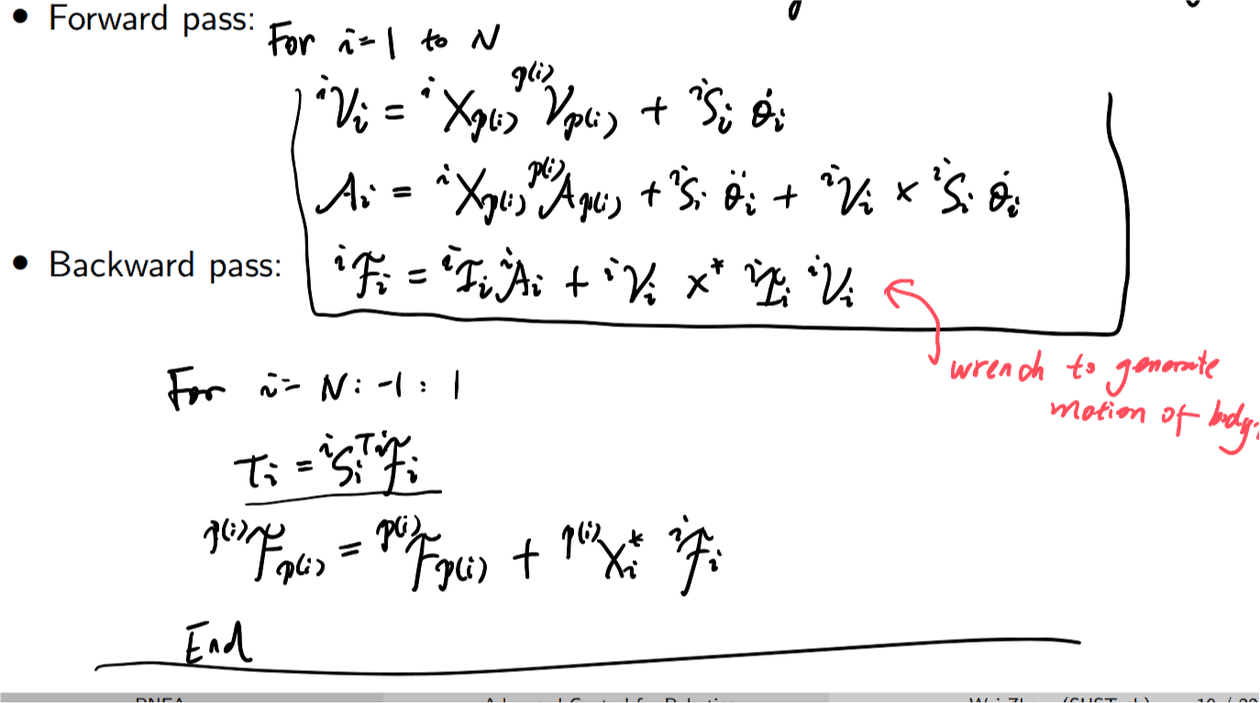 • Forward pass: For i=1 to N
ⁱV_i = ⁱX_{p(i)} ^{p(i)}V_{p(i)} + ⁱS_i θ̇_i
A_i = ⁱX_{p(i)} ^{p(i)}A_{p(i)} + ⁱS_i θ̈_i + ⁱV_i × ⁱS_i θ̇_i
• Backward pass: ⁱF_i = ⁱI_i ⁱA_i + ⁱV_i ×* ⁱI_i ⁱV_i
wrench to generate
motion of body
For i= N:-1:1
τ_i = ⁱS_i^T ⁱF_i
^{p(i)}F_{p(i)} = ^{p(i)}F_{p(i)} + ^{p(i)}X_i^* ⁱF_i
End